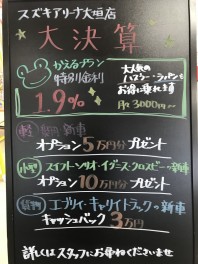 スズキアリーナ大垣店
大決算
かえるプラン
特別金利
1.9%
大人気の
ハスラー・ラパンも
お得に乗れます
月々3000円〜
軽 乗用 新車
オプション5万円分プレゼント
小型 スイフト・ソリオ・イグニス・クロスビーの新車
オプション10万円分プレゼント
貨物 エブリイ・キャリイトラックの新車
キャッシュバック3万円
詳しくはスタッフにお尋ねくださいませ